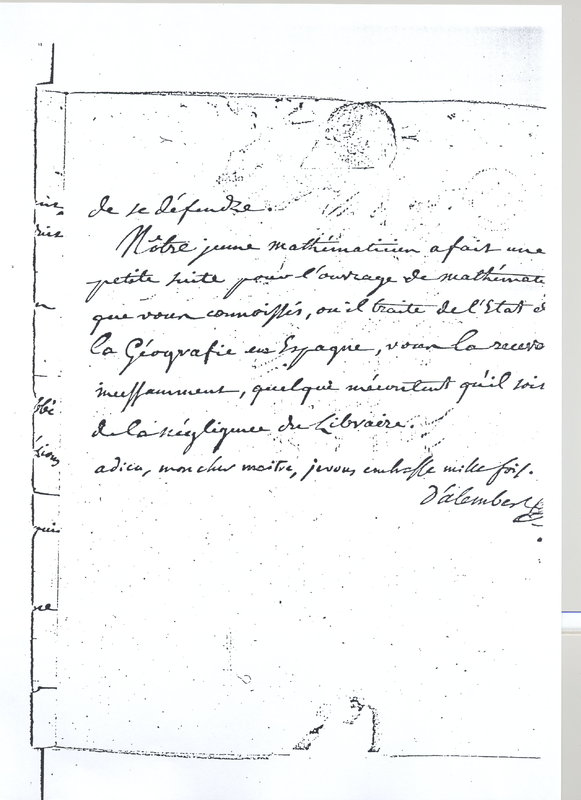 de se défendre.
Nôtre jeune mathématicien a fait une
petite suite pour l'ouvrage de mathémat
que vous connoissés, ou il traite de l'Etat d
la Géografie en Espagne, vous la recevr
incessamment, quelque mécontent qu'il soit
de la négligence du Libraire.
adieu, mon cher maitre, je vous embrasse mille fois.
D'alembert